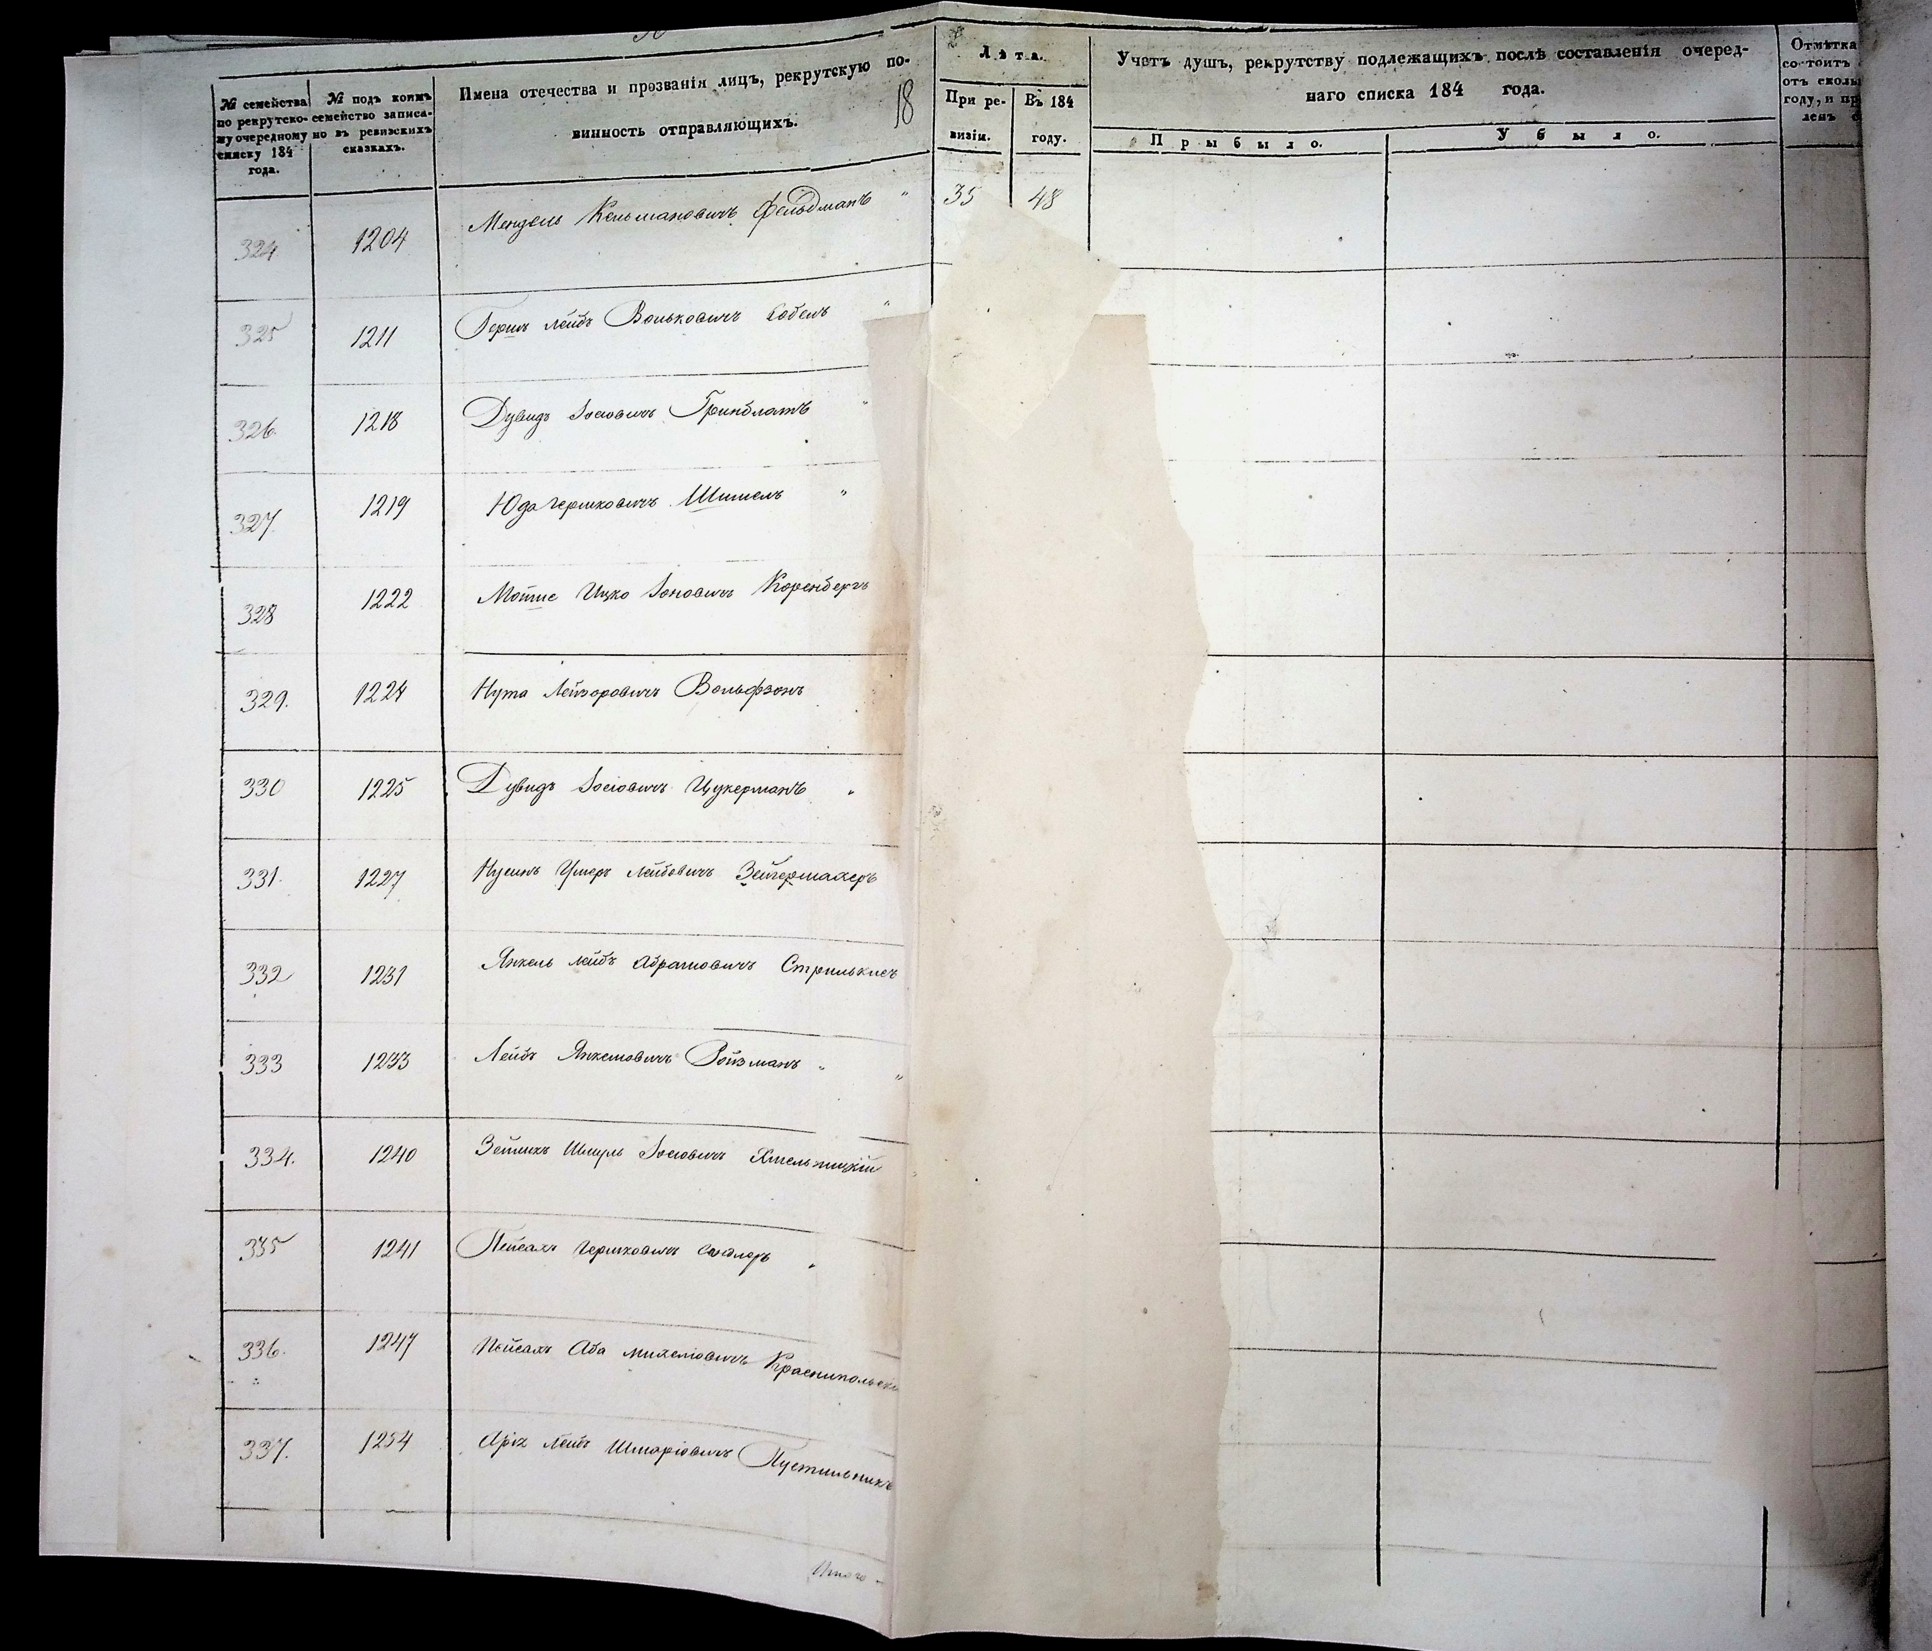 № семейства по рекрутскому очередному списку 184 года.
№ подъ коимъ семейство записано въ ревизскихъ сказкахъ.
Имена отечества и прозванія лицъ, рекрутскую повинность отправляющихъ.
18
Лѣта.
При ревизіи.
Въ 184 году.
Учетъ душъ, рекрутству подлежащихъ послѣ составленія очереднаго списка 184 года.
Прыбыло.
Убыло.
Отмѣтка
состоитъ
отъ
году, и
324 1204 Мендель Кельмановичъ Фельдманъ " 35 48
325 1211 Гершъ Лейбъ Вольковичъ Собель "
326. 1218 Дувидъ Іосіовичъ Гринблатъ "
327. 1219 Юда Гершковичъ Шишель "
328 1222 Мотше Ицко Іоновичъ Коренбергъ
329. 1224 Нута Лейзоровичъ Вольфзонъ
330 1225 Дувидъ Іосіовичъ Цукерманъ "
331. 1227 Нусинъ Умеръ Лейбовичъ Зейгермахеръ
332 1231 Янкель Лейбъ Абрамовичъ
333 1233 Лейбъ Янкелювичъ Ройзманъ " "
334. 1240 Зейликъ Шмуль Іосіовичъ Хмельницкій
335 1241 Пейсахъ Гершковичъ "
336. 1247 Пейсахъ Аба Михеліовичъ
337. 1254 Аріе Лейбъ Шмаріовичъ Пустильникъ
Итого